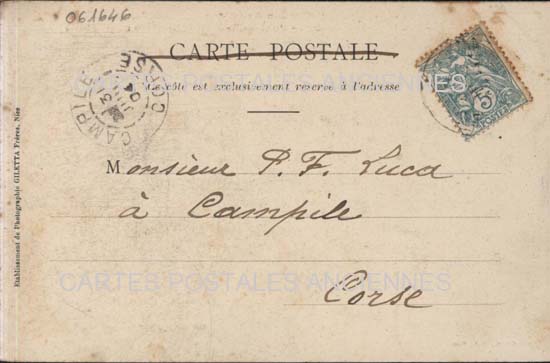 061646
CARTE POSTALE
Ce côté est exclusivement réservé à l'adresse
CAMPILE CORSE
Monsieur P. F. Luca
à Campile
Corse
Etablissement de Photographie GILETTA Frères, Nice
CARTES POSTALES ANCIENNES
5
POSTES